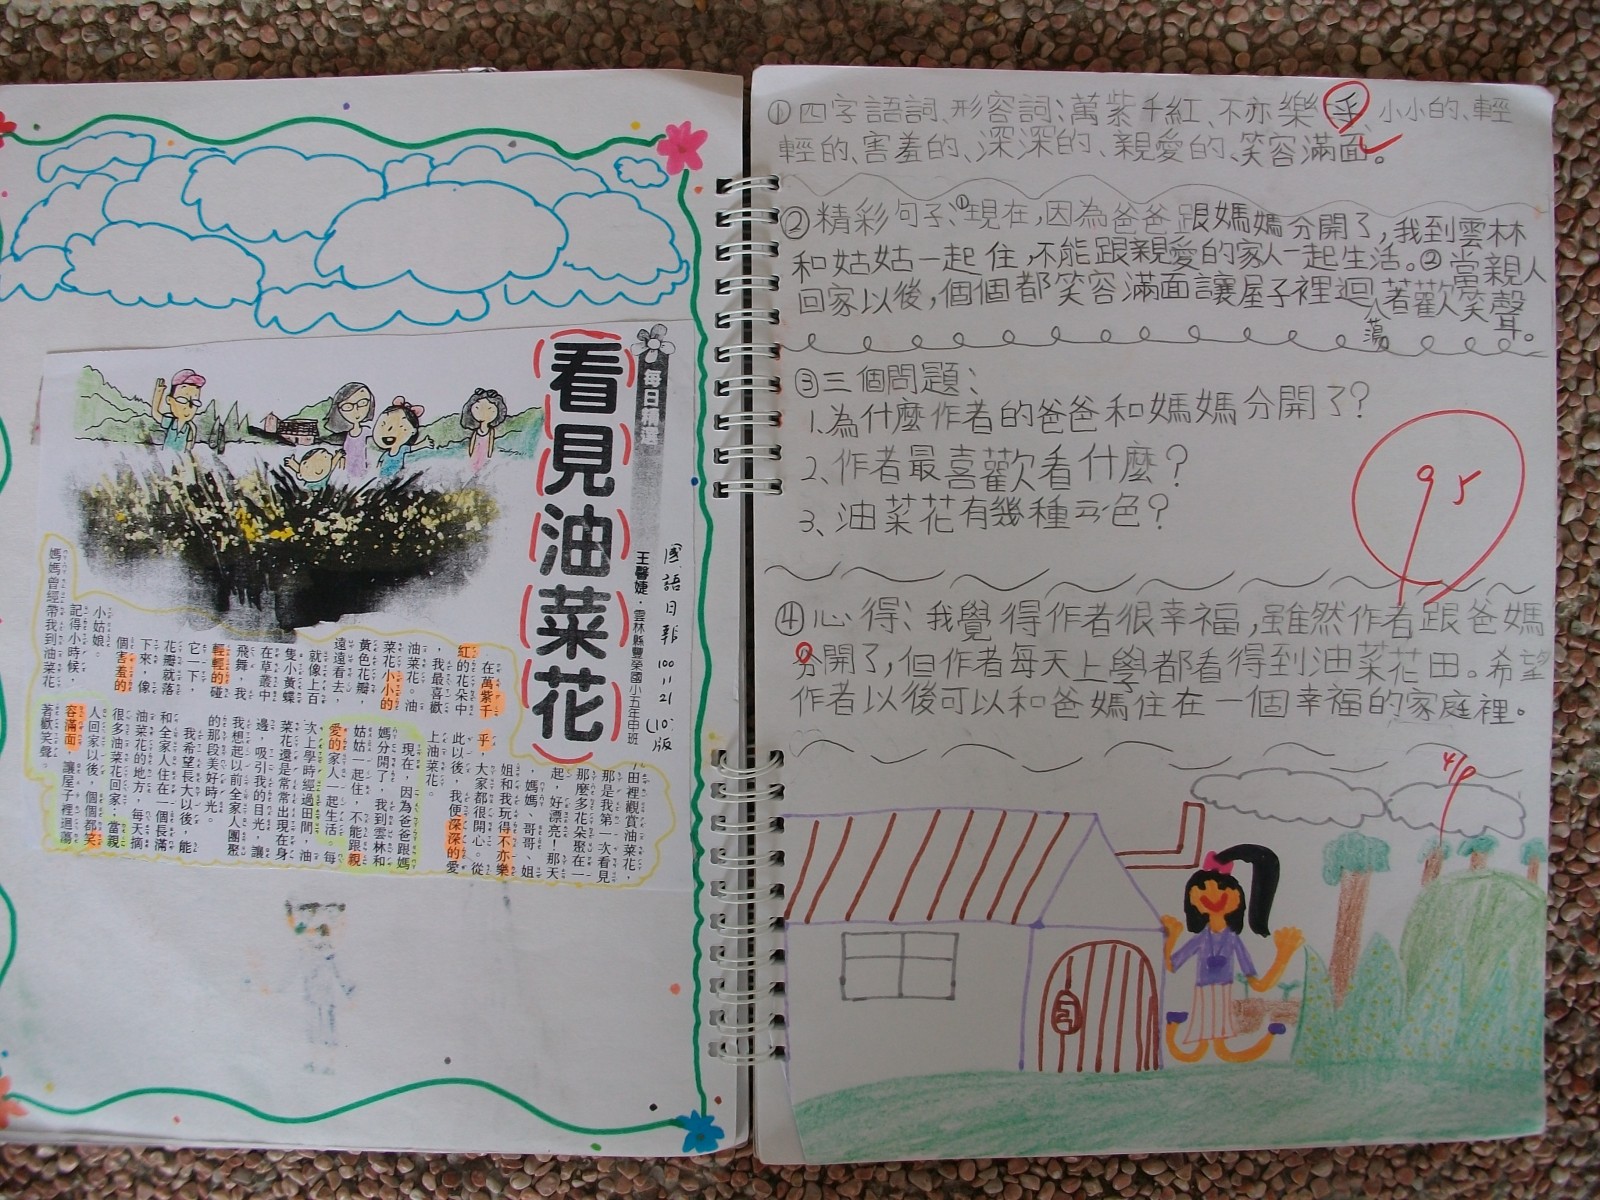 每日精選
看見油菜花
王馨婕・雲林縣豐榮國小五年中班
國語日報 100.11.21 (10)版
在萬紫千
紅的花朵中
，我最喜歡
油菜花。油
菜花小小的
黃色花瓣，
遠遠看去，
就像上百
隻小黃蝶
在草叢中
飛舞，我
輕輕的碰
它一下，
花瓣就落
下來，像
個害羞的
小姑娘。
記得小時候，
媽媽曾經帶我到油菜花
田裡觀賞油菜花，
那是我第一次看見
那麼多花朵聚在一
起，好漂亮！那天
，媽媽、哥哥、姐
姐和我玩得不亦樂
乎，大家都很開心。從
此以後，我便深深的愛
上油菜花。
現在，因為爸爸跟媽
媽分開了，我到雲林和
姑姑一起住，不能跟親
愛的家人一起生活。每
次上學時經過田間，油
菜花還是常常出現在身
邊，吸引我的目光，讓
我想起以前全家人團聚
的那段美好時光。
我希望長大以後，能
和全家人住在一個長滿
油菜花的地方，每天摘
很多油菜花回家；當親
人回家以後，個個都笑
容滿面，讓屋子裡迴蕩
著歡笑聲。
①四字語詞、形容詞：萬紫千紅、不亦樂乎 小小的、輕
輕的、害羞的、深深的、親愛的、笑容滿面。
②精彩句子：①現在，因為爸爸跟媽媽分開了，我到雲林
和姑姑一起住，不能跟親愛的家人一起生活。②當親人
回家以後，個個都笑容滿面讓屋子裡迴蕩著歡笑聲。
③三個問題：
1.為什麼作者的爸爸和媽媽分開了？
2、作者最喜歡看什麼？
3、油菜花有幾種云色？
95
④心得：我覺得作者很幸福，雖然作者跟爸媽
分開了，但作者每天上學都看得到油菜花田。希望
作者以後可以和爸媽住在一個幸福的家庭裡。